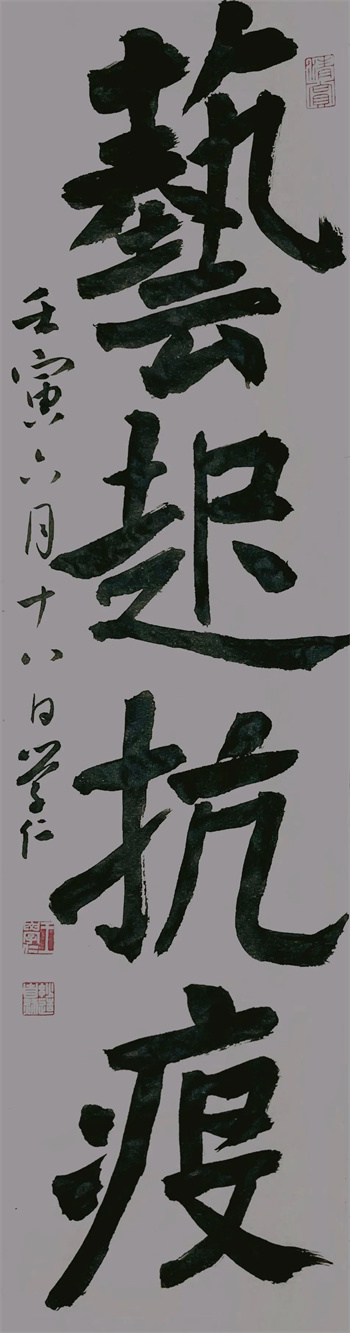 藝起抗疫
壬寅六月十八日学仁